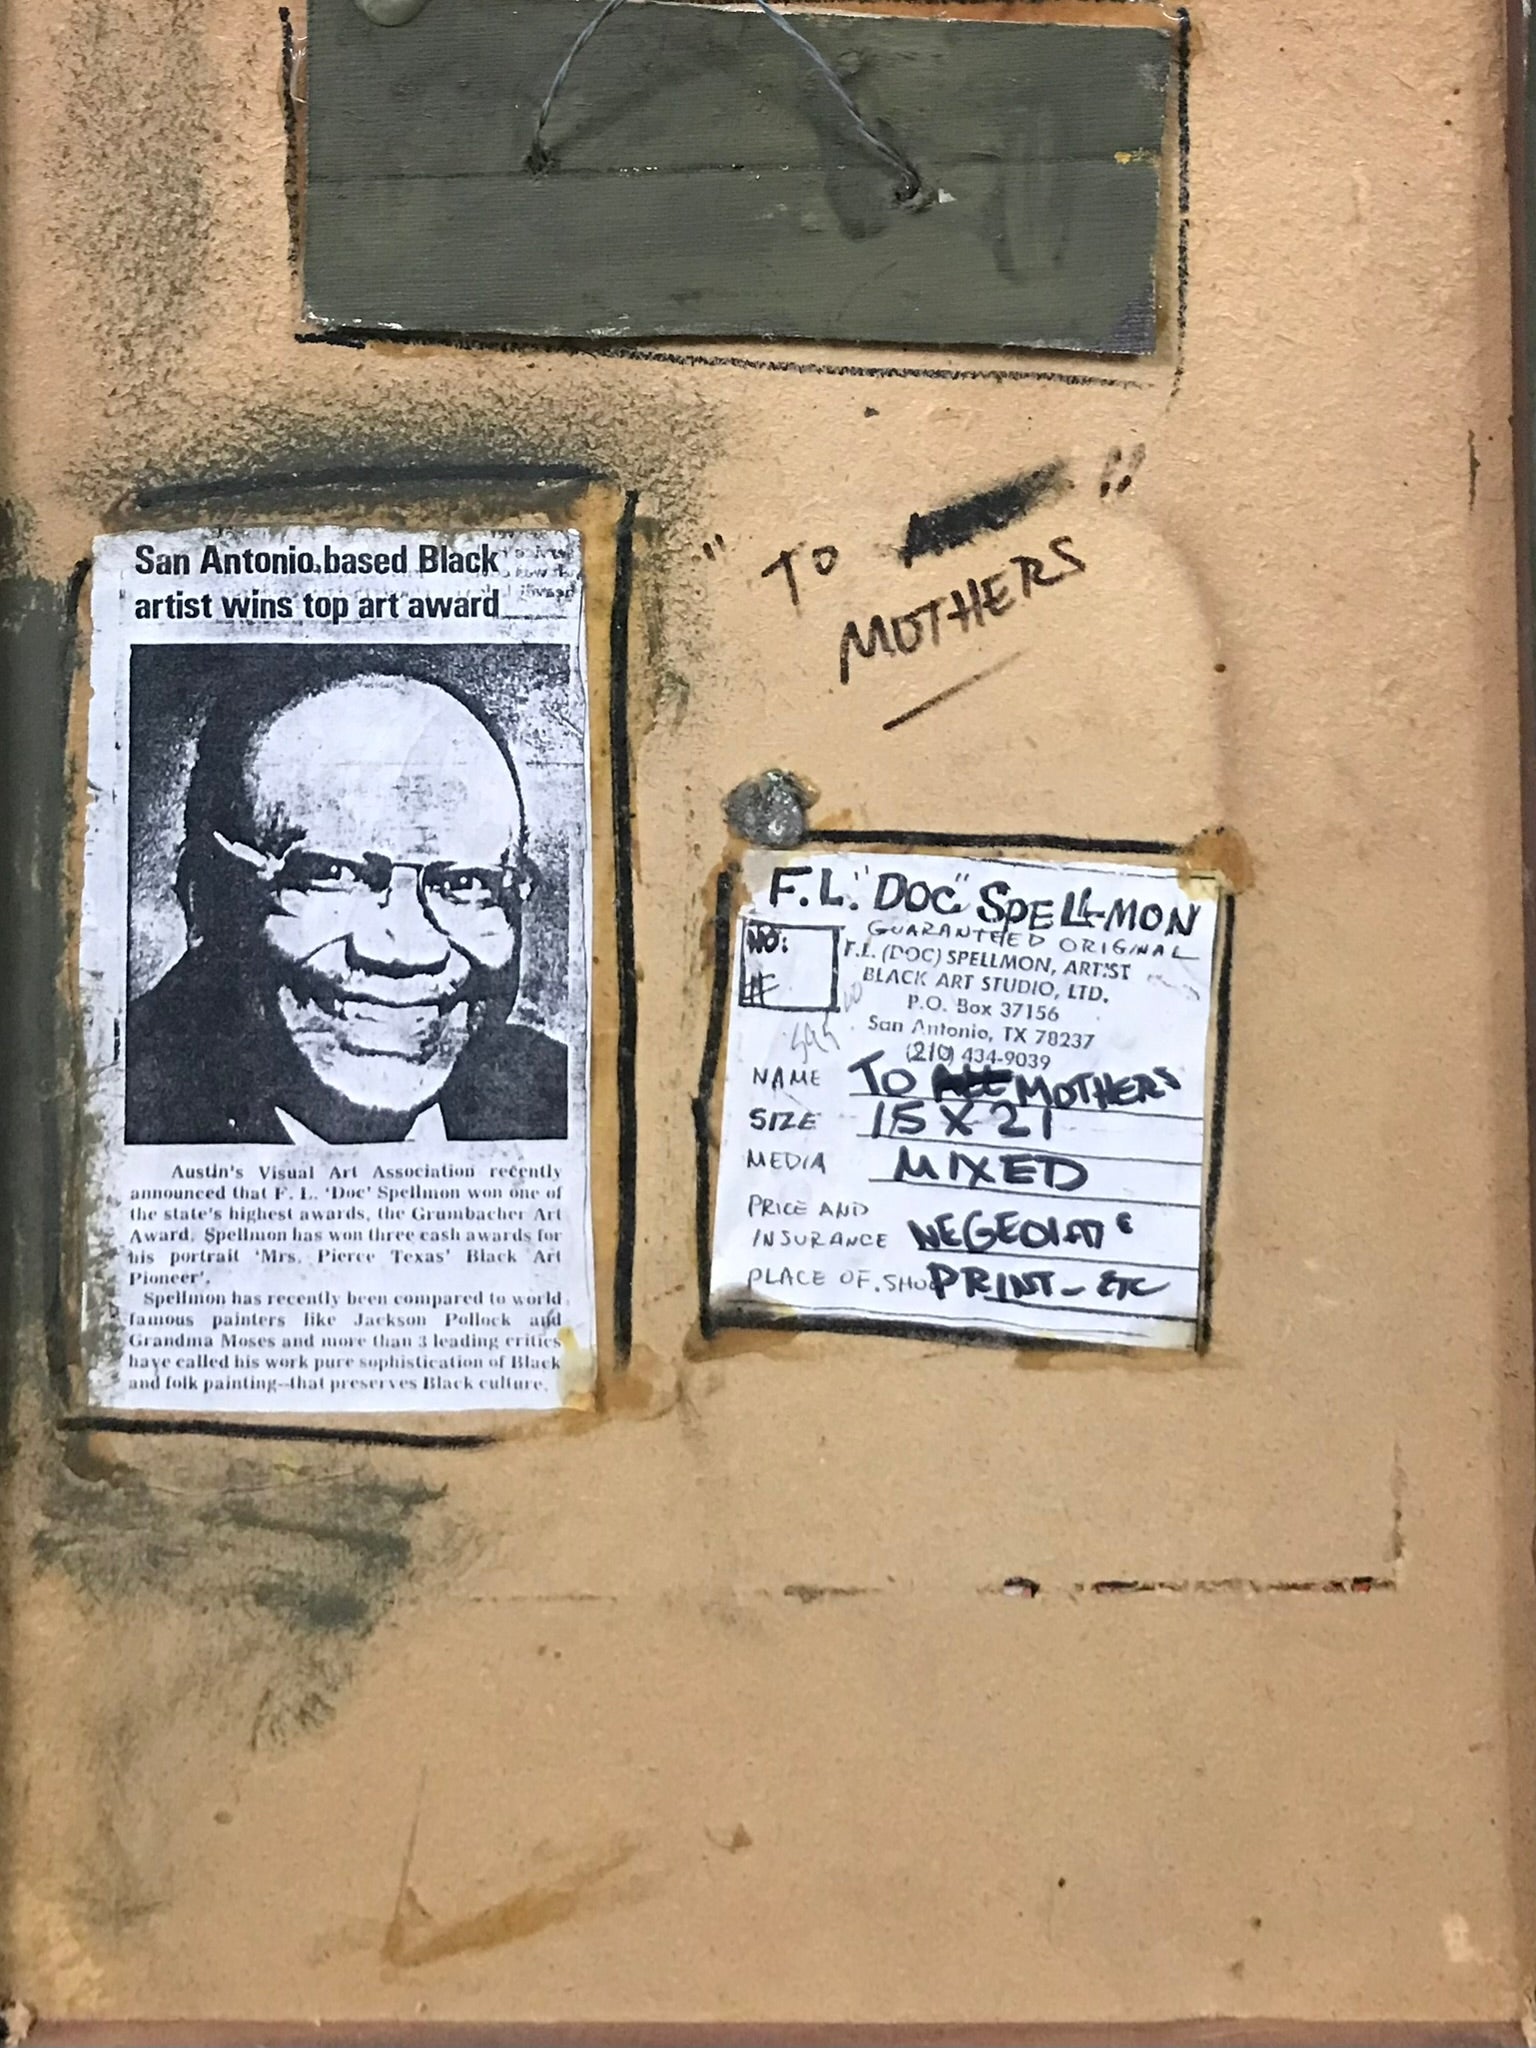 San Antonio based Black
artist wins top art award
Austin's Visual Art Association recently
announced that F. L. 'Doc' Spellmon won one of
the state's highest awards, the Grumbacher Art
Award. Spellmon has won three cash awards for
his portrait 'Mrs. Pierce Texas' Black Art
Pioneer'.
Spellmon has recently been compared to world
famous painters like Jackson Pollock and
Grandma Moses and more than 3 leading critics
have called his work pure sophistication of Black
and folk painting--that preserves Black culture.
" TO "
MOTHERS
F.L. "DOC" SPELL-MON
GUARANTEED ORIGINAL
NO:
#
F.L. (DOC) SPELLMON, ARTIST
BLACK ART STUDIO, LTD.
P.O. Box 37156
San Antonio, TX 78237
(210) 434-9039
NAME TO MOTHERS
SIZE 15 X 21
MEDIA MIXED
PRICE AND
INSURANCE
PLACE OF. PRINT - ETC